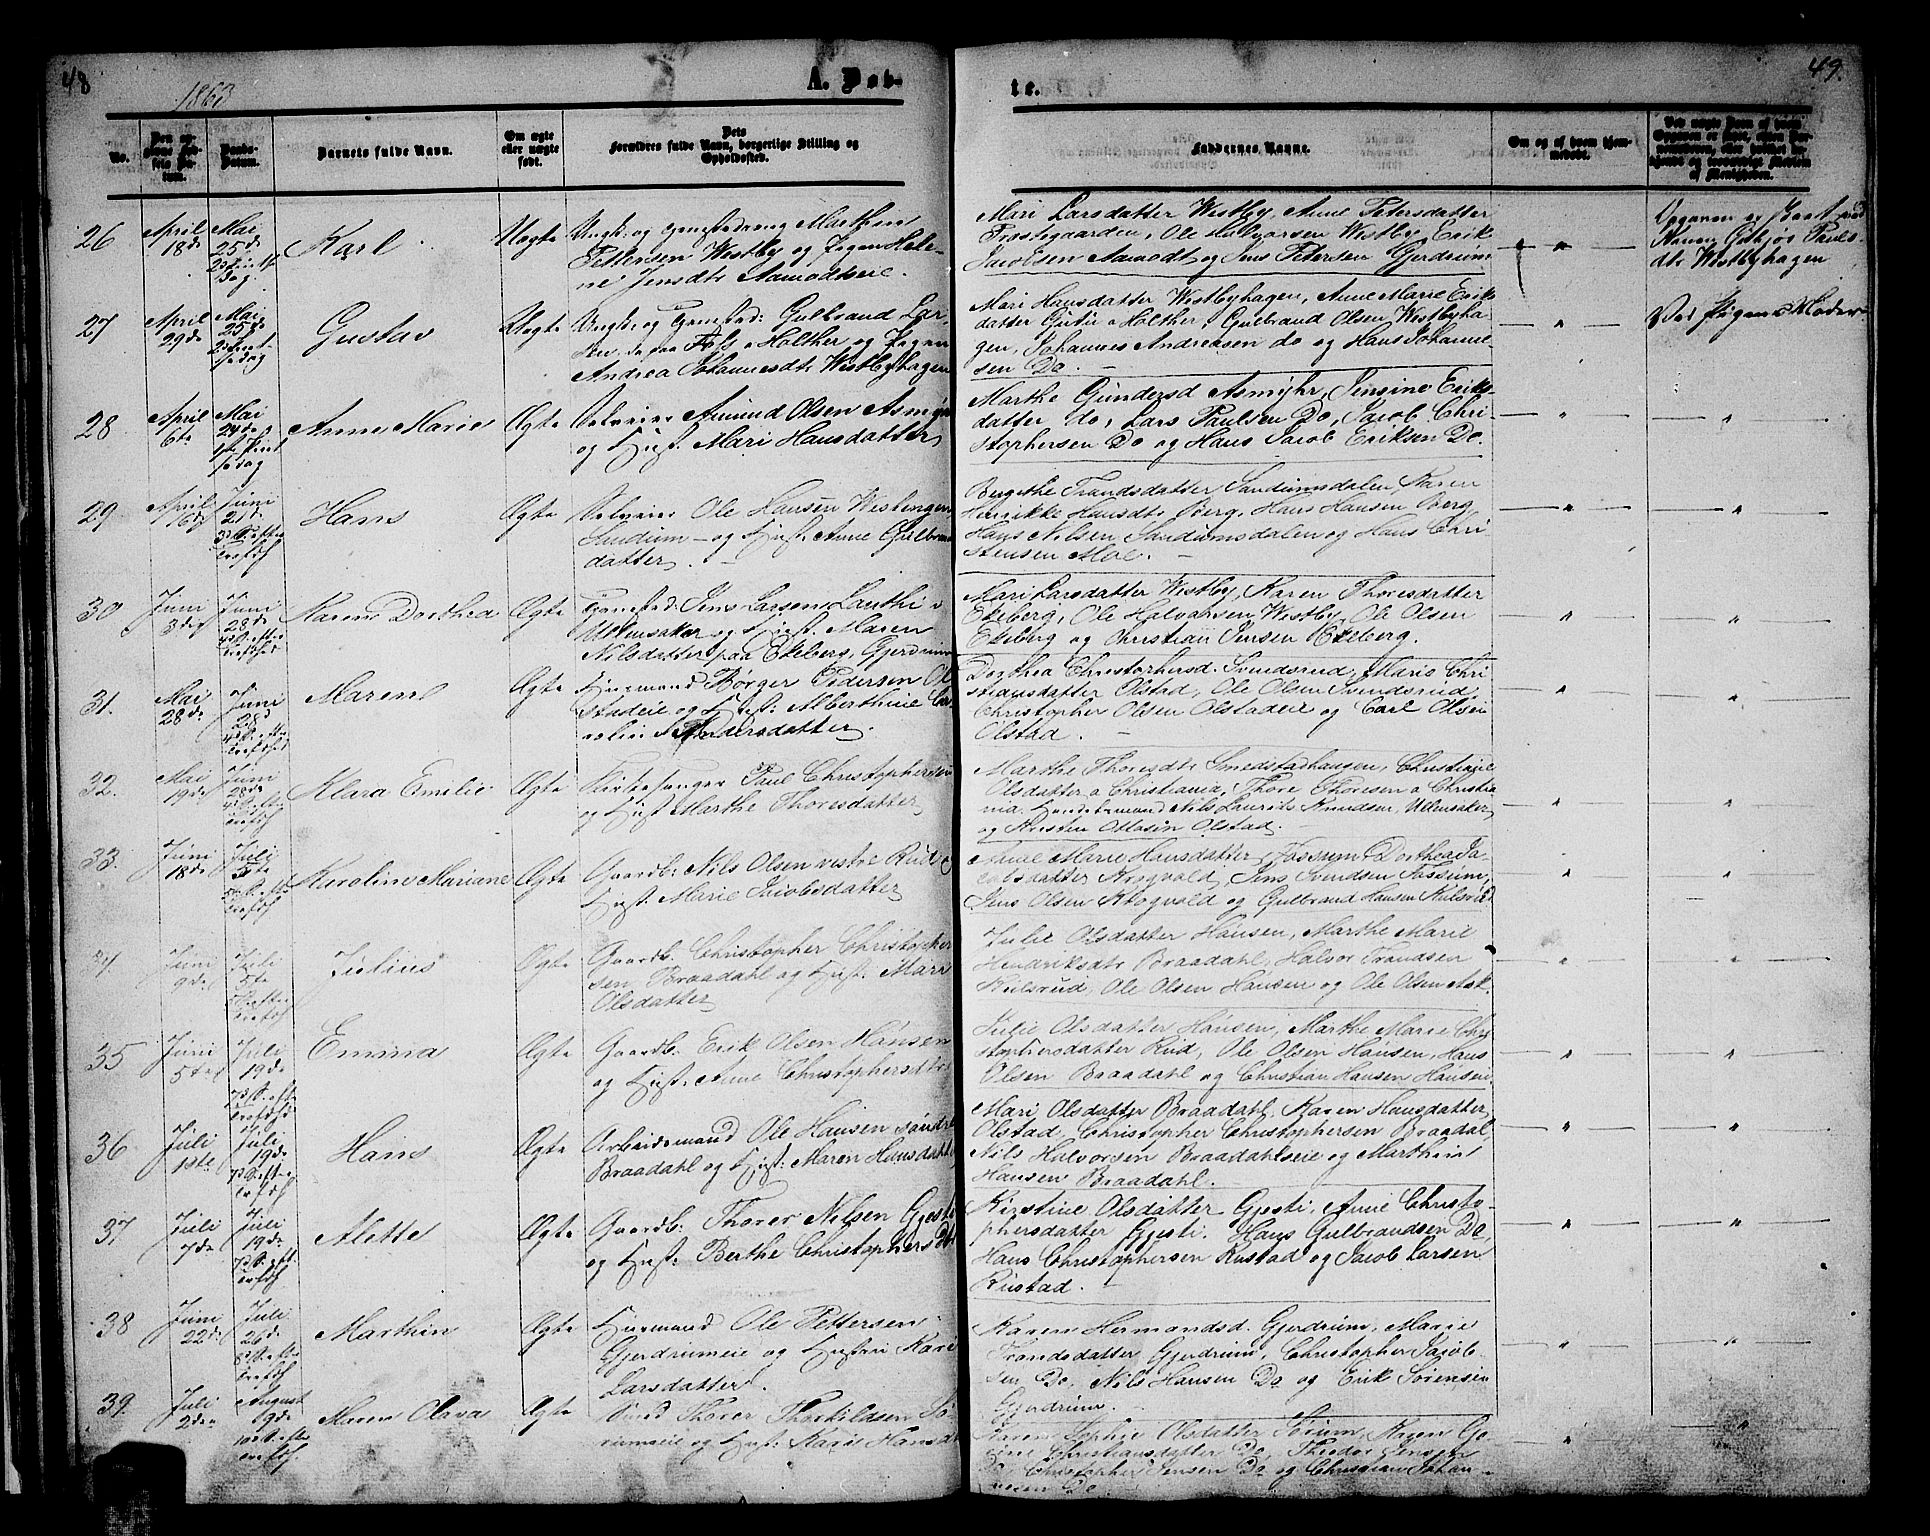 48
1863
A. Døb-
No.
Barnets fulde Navn.
Om ægte eller uægte født.
Dets Forældres fulde Navn, borgerlige Stilling og Opholdssted.
26
April 18de
Mai 25de
Karl
Uegte
Ungk. og tjenestedreng Marthin
Pettersen Westby og Pigen Hele-
ne Jensdtr Aamodteie.
27
April 29de
Mai 25de
Gustav
Uegte
Ungk. og Tjenested: Gulbrand Lar-
sen, do paa Foss i Holther og Pigen
Andrea Johannesdtr Westbyhagen
28
April 6te
Mai 24de
Anne Marie
Ægte
Selveier Amund Olsen Asmyhr
og Hust. Mari Hansdatter
29
April 16d
Juni 21de
Hans
Ægte
Selveier Ole Hansen Westengen
Sandum – og Hust. Anne Gulbrands
datter.
30
Juni 3die
Juni 28de
Karen Dorthea
Ægte
Tjenested: Jens Larsen Lauthi i
Ullensaker og Hust. Maren
Nilsdatter paa Ekeberg, Gjerdrum
31.
Mai 28de
Juni 28d
Maren
Ægte
Huusmand Børger Pedersen Ol
stadeie og Hust: Alberthine Ca
roline Andersdatter.
32.
Mai 19de
Juni 28de
Klara Emilie
Ægte
Kirkesanger Paul Christophersen
og Hust Marthe Thoresdatter
33.
Juni 18de
Juli 5te
Karoline Mariane
Ægte
Gaardb: Nils Olsen vestre Rud og
Hust: Marie Jacobsdatter
34.
Juni 9de
Juli 5te
Julius
Ægte
Gaardb. Christopher Christopher
sen Braadahl og Hust: Mari
Olsdatter
35
Juni 5te
Juli 19de
Emma
Ægte
Gaardb: Erik Olsen Hansen
og Hust: Anne Christophersdtr
36
Juli 1ste
Juli 19de
Hans
Ægte
Arbeidsmand Ole Hansen søndre
Braadahl og Hust: Maren Hansdatter
37
Juli 7de
Juli 19de
Alette
Ægte
Gaardb: Thorer Nilsen Gjesti
og Hust: Berthe Christophersdtr
38
Juni 22de
Juli 26de
Marthin
Ægte
Huusmand Ole Pettersen
Gjerdrumeie og Hustru Kari
Larsdatter.
39.
Juli 2den
August 9de
Maren Olava
Ægte
Thorer Thorkildsen Sø-
rumeie og Hust: Karie Hansdt
49.
te.
Faddernes Navne.
Mari Larsdatter Westby, Anne Petersdatter
Prestegaarden, Ole Halvorsen Westby, Erik
Jacobsen Aamodt og Jens Petersen Gjerdrum
Opgaven er Bragt ved
Konen Gubjør Pauls
dtr Westbyhagen
Mari Hansdatter Westbyhagen, Anne Marie Eriks
datter Gutu i Holther, Gulbrand Olsen Westbyha-
gen, Johannes Andreasen do og Hans Johanne-
sen Do. –
Ved Pigens Moder
Marthe Gundersd Asmyhr, Jensine Eriks-
datter do, Lars Paulsen Do, Jacob Chri-
stophersen Do og Hans Jacob Eriksen Do.
Bergithe Trandsdatter Sandumsdalen, Karen
Henrikke Hansdtr Berg, Hans Hansen Berg,
Hans Nilsen Sandumsdalen og Hans Chri-
stensen Moe. –
Mari Larsdatter Westby, Karen Thoresdatter
Ekeberg, Ole Halvorsen Westby, Ole Olsen
Ekeberg og Christian Jensen Ekeberg.
Dorthea Christophersd. Svendsrud, Marie Chri
stiansdatter Olstad, Ole Olsen Svendsrud,
Christopher Olsen Olstadeie og Carl Olsen
Olstad. –
Marthe Thoresdtr Smedstadhaugen, Christiane
Olsdatter a Christiania, Thore Thoresen a Christia
nia, Handelsmand Nils Laurits Knudsen, Ullensaker
og Kristen Ottosen Olstad. –
Anne Marie Hansdatter Fossum, Dorthea Ja-
cobsdatter Krogvold, Jens Svendsen Fossum,
Jens Olsen Krogvold og Gulbrand Hansen Kulsrud
Julie Olsdatter Hansen, Marthe Marie
Hendriksdtr Braadahl, Halvor Trondsen
Kulsrud, Ole Olsen Hansen og Ole Olsen Ask.
Julie Olsdatter Hansen, Marthe Marie Chri
stophersdatter Rud, Ole Olsen Hansen, Hans
Olsen Braadahl og Christian Hansen Hansen.
Mari Olsdatter Braadahl, Karen Hansdatter
Olstad, Christopher Christophersen Braadal,
Nils Halvorsen Braadahlseie og Marthin
Hansen Braadahl. –
Kirstine Olsdatter Gjesti, Anne Christo-
phersdatter Gjesti. Hans Gulbrandsen Do,
Hans Christophersen Rustad og Jacob Larsen
Rustad. –
Karen Hermandsd. Gjerdrum, Marie
Trondsdatter Gjerdrum, Christopher Jacob-
sen Do, Nils Hansen Do og Erik Sørensen
Gjerdrum.
Karen Sophie Olsdatter Sørum, Karen Ge-
line Christiansdatter Do, Theodor Jensen
Do, Christopher Jensen Do og Christian Johan-
nesen Do